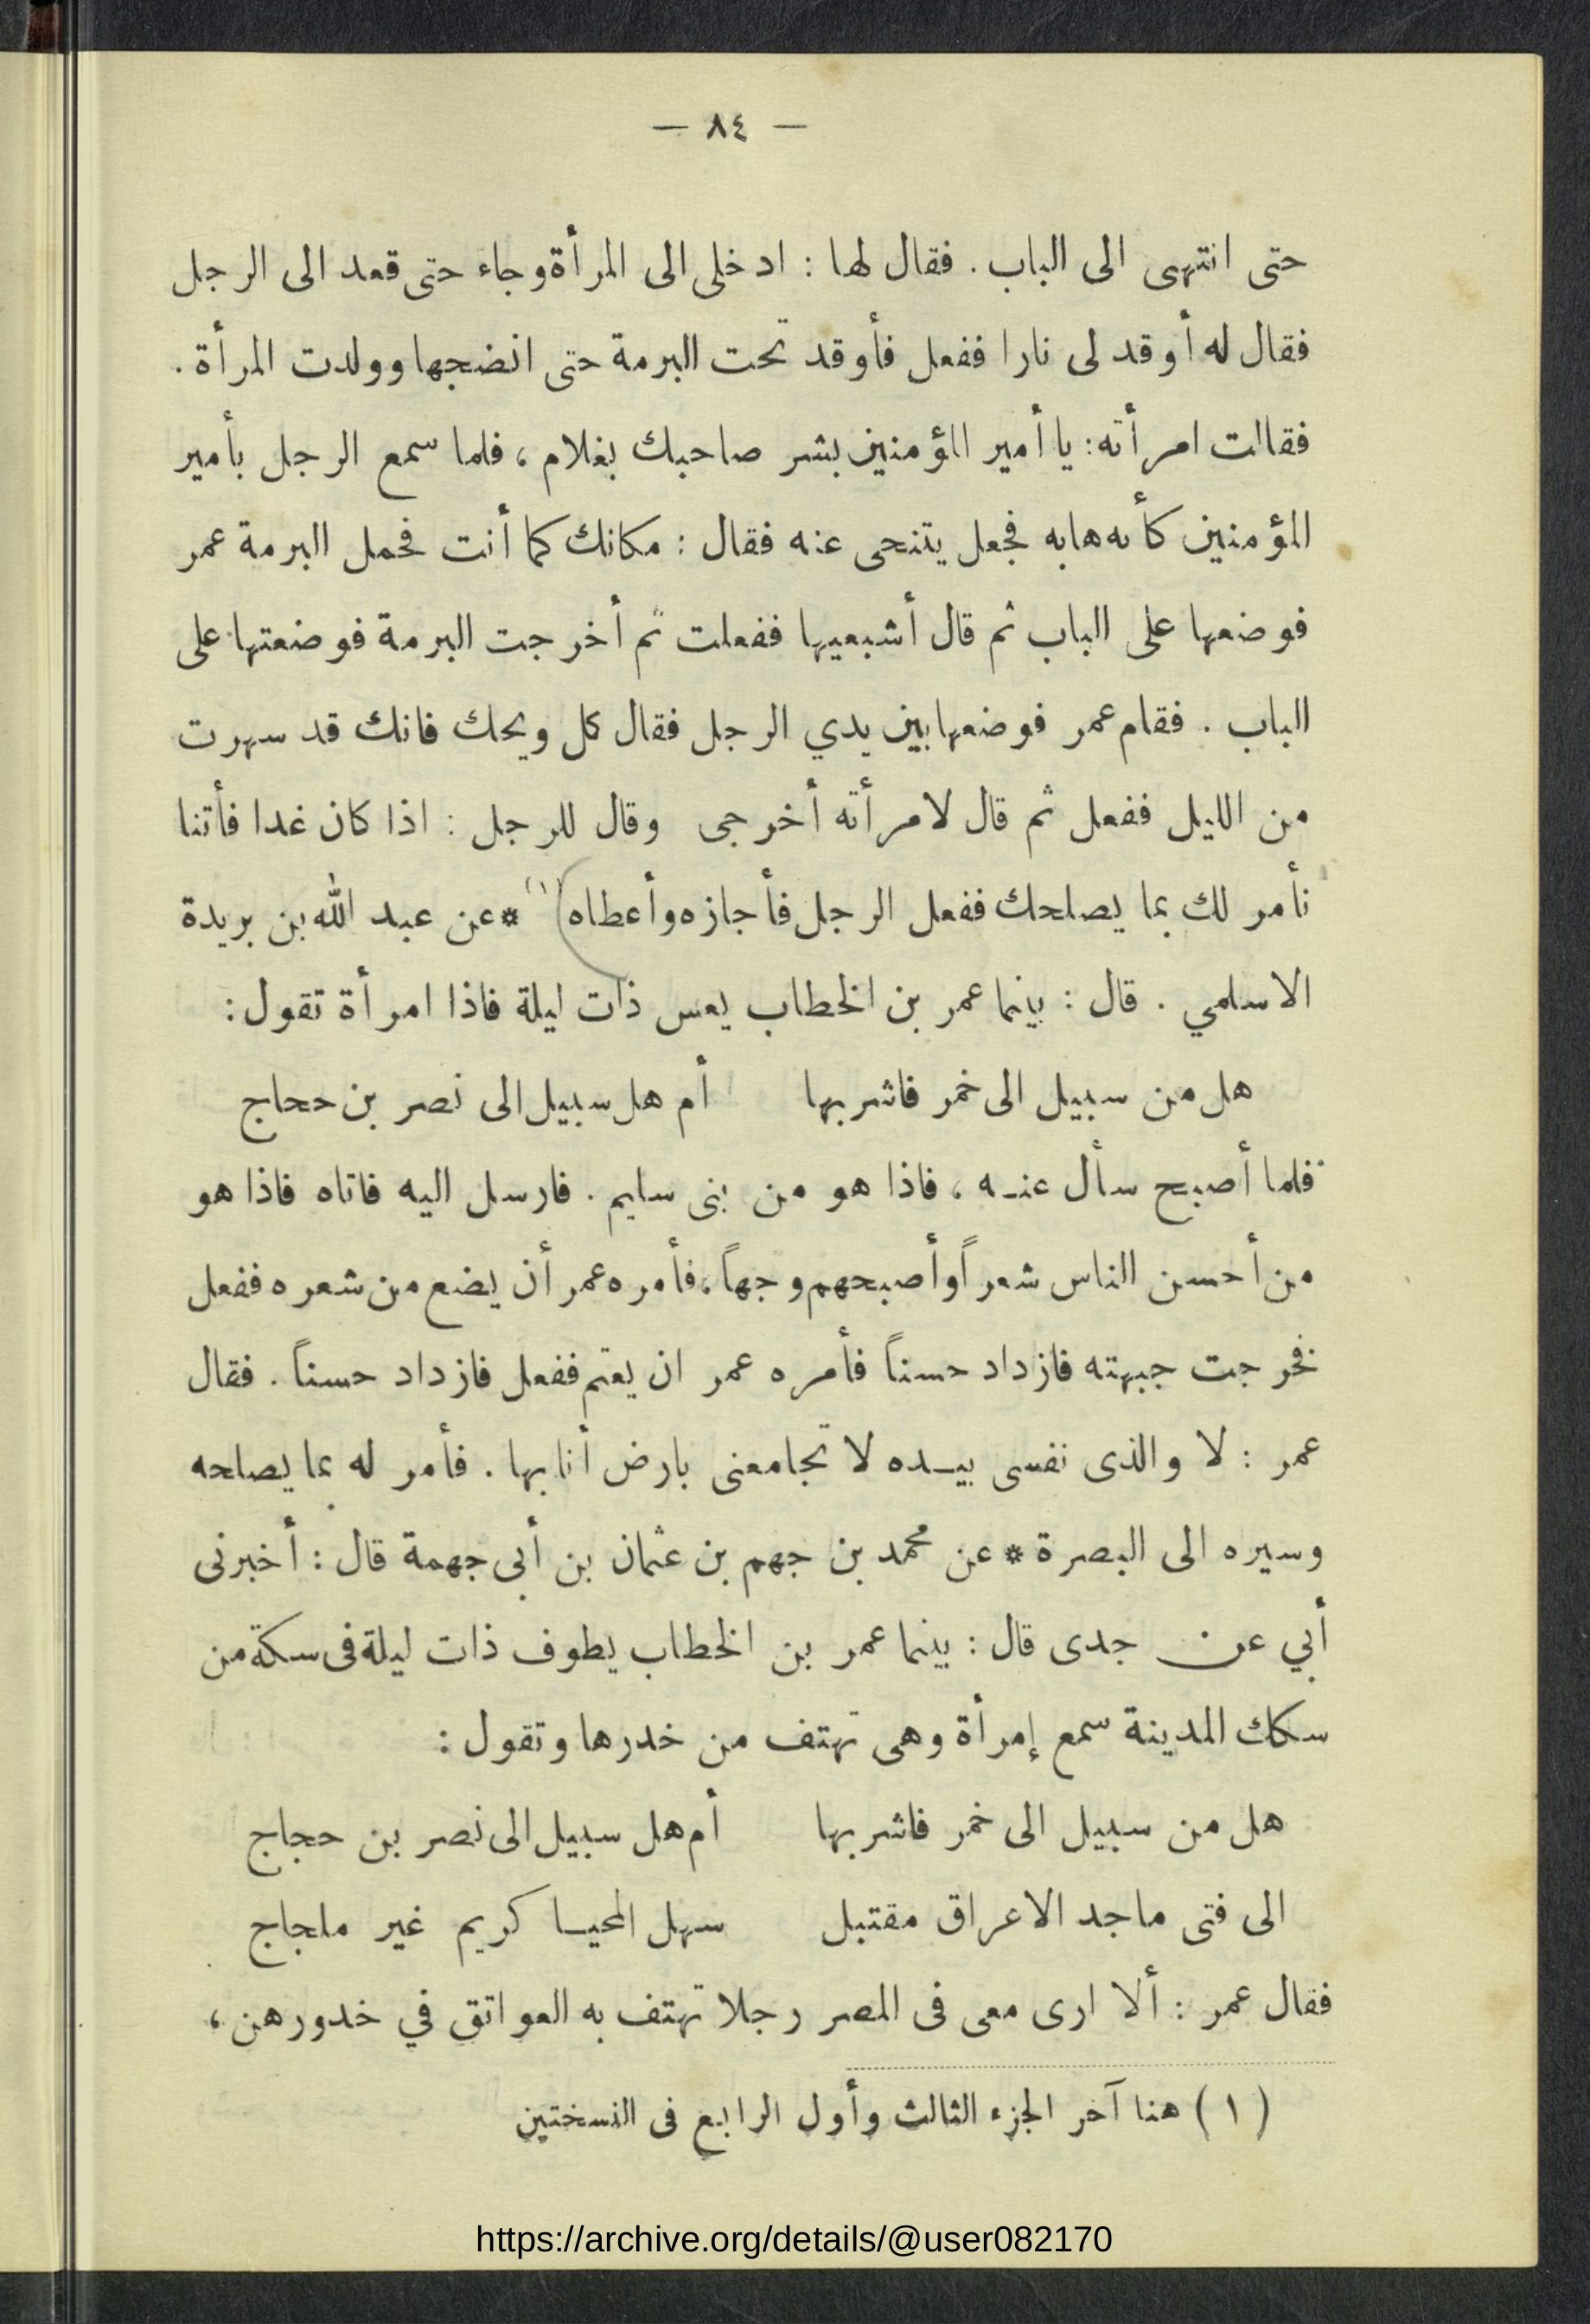 — ٨٤ —
حتى انتهى الى الباب . فقال لها : ادخلى الى المرأة وجاء حتى قعد الى الرجل
فقال له أوقد لى نارا ففعل فأوقد تحت البرمة حتى انضجها وولدت المرأة .
فقالت امرأته : يا أمير المؤمنين بشر صاحبك بغلام ، فلما سمع الرجل بأمير
المؤمنين كأنه هابه فجعل يتنحى عنه فقال : مكانك كما أنت فحمل البرمة عمر
فوضعها على الباب ثم قال أشبعيها ففعلت ثم أخرجت البرمة فوضعتها على
الباب . فقام عمر فوضعها بين يدي الرجل فقال كل ويحك فانك قد سهرت
من الليل ففعل ثم قال لامرأته أخرجى وقال للرجل : اذا كان غدا فأتنا
نأمر لك بما يصلحك ففعل الرجل فأجازه وأعطاه (١) * عن عبد الله بن بريدة
الاسلمي . قال : بينما عمر بن الخطاب يعس ذات ليلة فاذا امرأة تقول :
هل من سبيل الى خمر فاشربها أم هل سبيل الى نصر بن حجاج
فلما أصبح سأل عنـه ، فاذا هو من بنى سليم . فارسل اليه فاتاه فاذا هو
من أحسن الناس شعراً وأصبحهم وجهاً ، فأمره عمر أن يضع من شعره ففعل
فخرجت جبهته فازداد حسناً فأمره عمر ان يعتم ففعل فازداد حسناً . فقال
عمر : لا والذى نفسى بيـده لا تجامعنى بارض أنا بها . فأمر له بما يصلحه
وسيره الى البصرة * عن محمد بن جهم بن عثمان بن أبى جهمة قال : أخبرنى
أبي عن جدى قال : بينما عمر بن الخطاب يطوف ذات ليلة فى سكة من
سكك المدينة سمع إمرأة وهى تهتف من خدرها وتقول :
هل من سبيل الى خمر فاشربها أم هل سبيل الى نصر بن حجاج
الى فتى ماجد الاعراق مقتبل سهل المحيـا كريم غير ملجاج
فقال عمر : ألا ارى معى فى المصر رجلا تهتف به العواتق في خدورهن ،
( ١ ) هنا آخر الجزء الثالث وأول الرابع فى النسختين
https://archive.org/details/@user082170